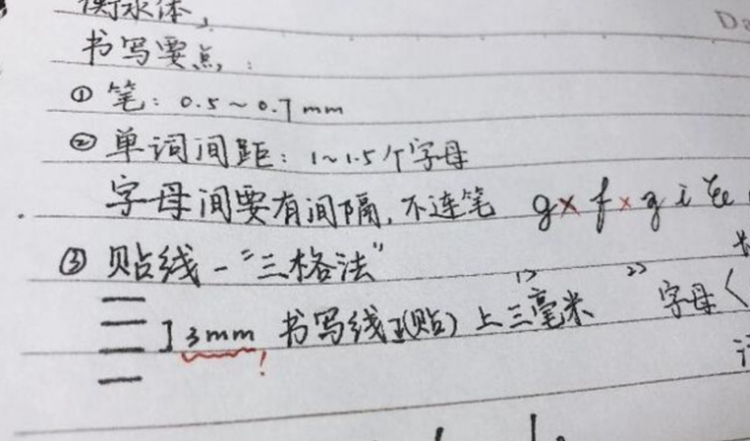 衡水体,
书写要点:
① 笔: 0.5~0.7mm
② 单词间距: 1~1.5个字母
字母间要有间隔,不连笔 g x f x g i
③ 贴线-"三格法"
1> 2>
3mm 书写线(贴)上三毫米 字母
!